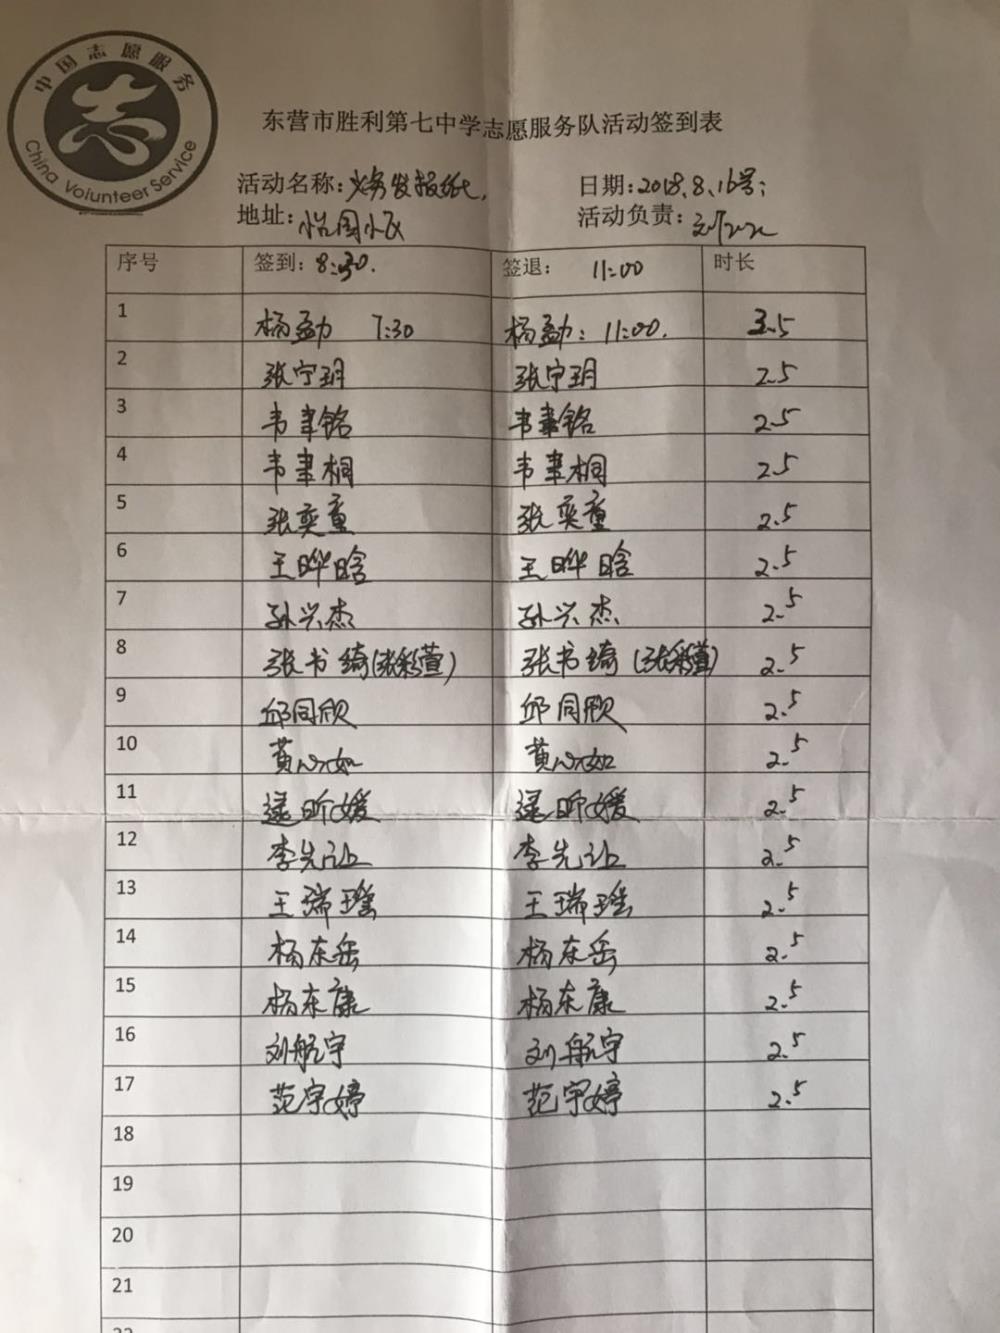 中国志愿服务
China Volunteer Service
东营市胜利第七中学志愿服务队活动签到表
活动名称：义务发报纸， 日期：2018.8.16号；
地址：怡园小区 活动负责：
序号 签到：8:30. 签退： 11:00 时长
1 杨孟劼 7:30 杨孟劼：11:00. 3.5
2 张宁玥 张宁玥 2.5
3 韦聿铭 韦聿铭 2.5
4 韦聿桐 韦聿桐 2.5
5 张奕童 张奕童 2.5
6 王晔晗 王晔晗 2.5
7 孙兴杰 孙兴杰 2.5
8 张书绮（张彩萱） 张书绮（张彩萱） 2.5
9 邱同欣 邱同欣 2.5
10 黄心如 黄心如 2.5
11 逯昕媛 逯昕媛 2.5
12 李先让 李先让 2.5
13 王瑞瑶 王瑞瑶 2.5
14 杨东岳 杨东岳 2.5
15 杨东康 杨东康 2.5
16 刘航宇 刘航宇 2.5
17 范宇婷 范宇婷 2.5
18
19
20
21